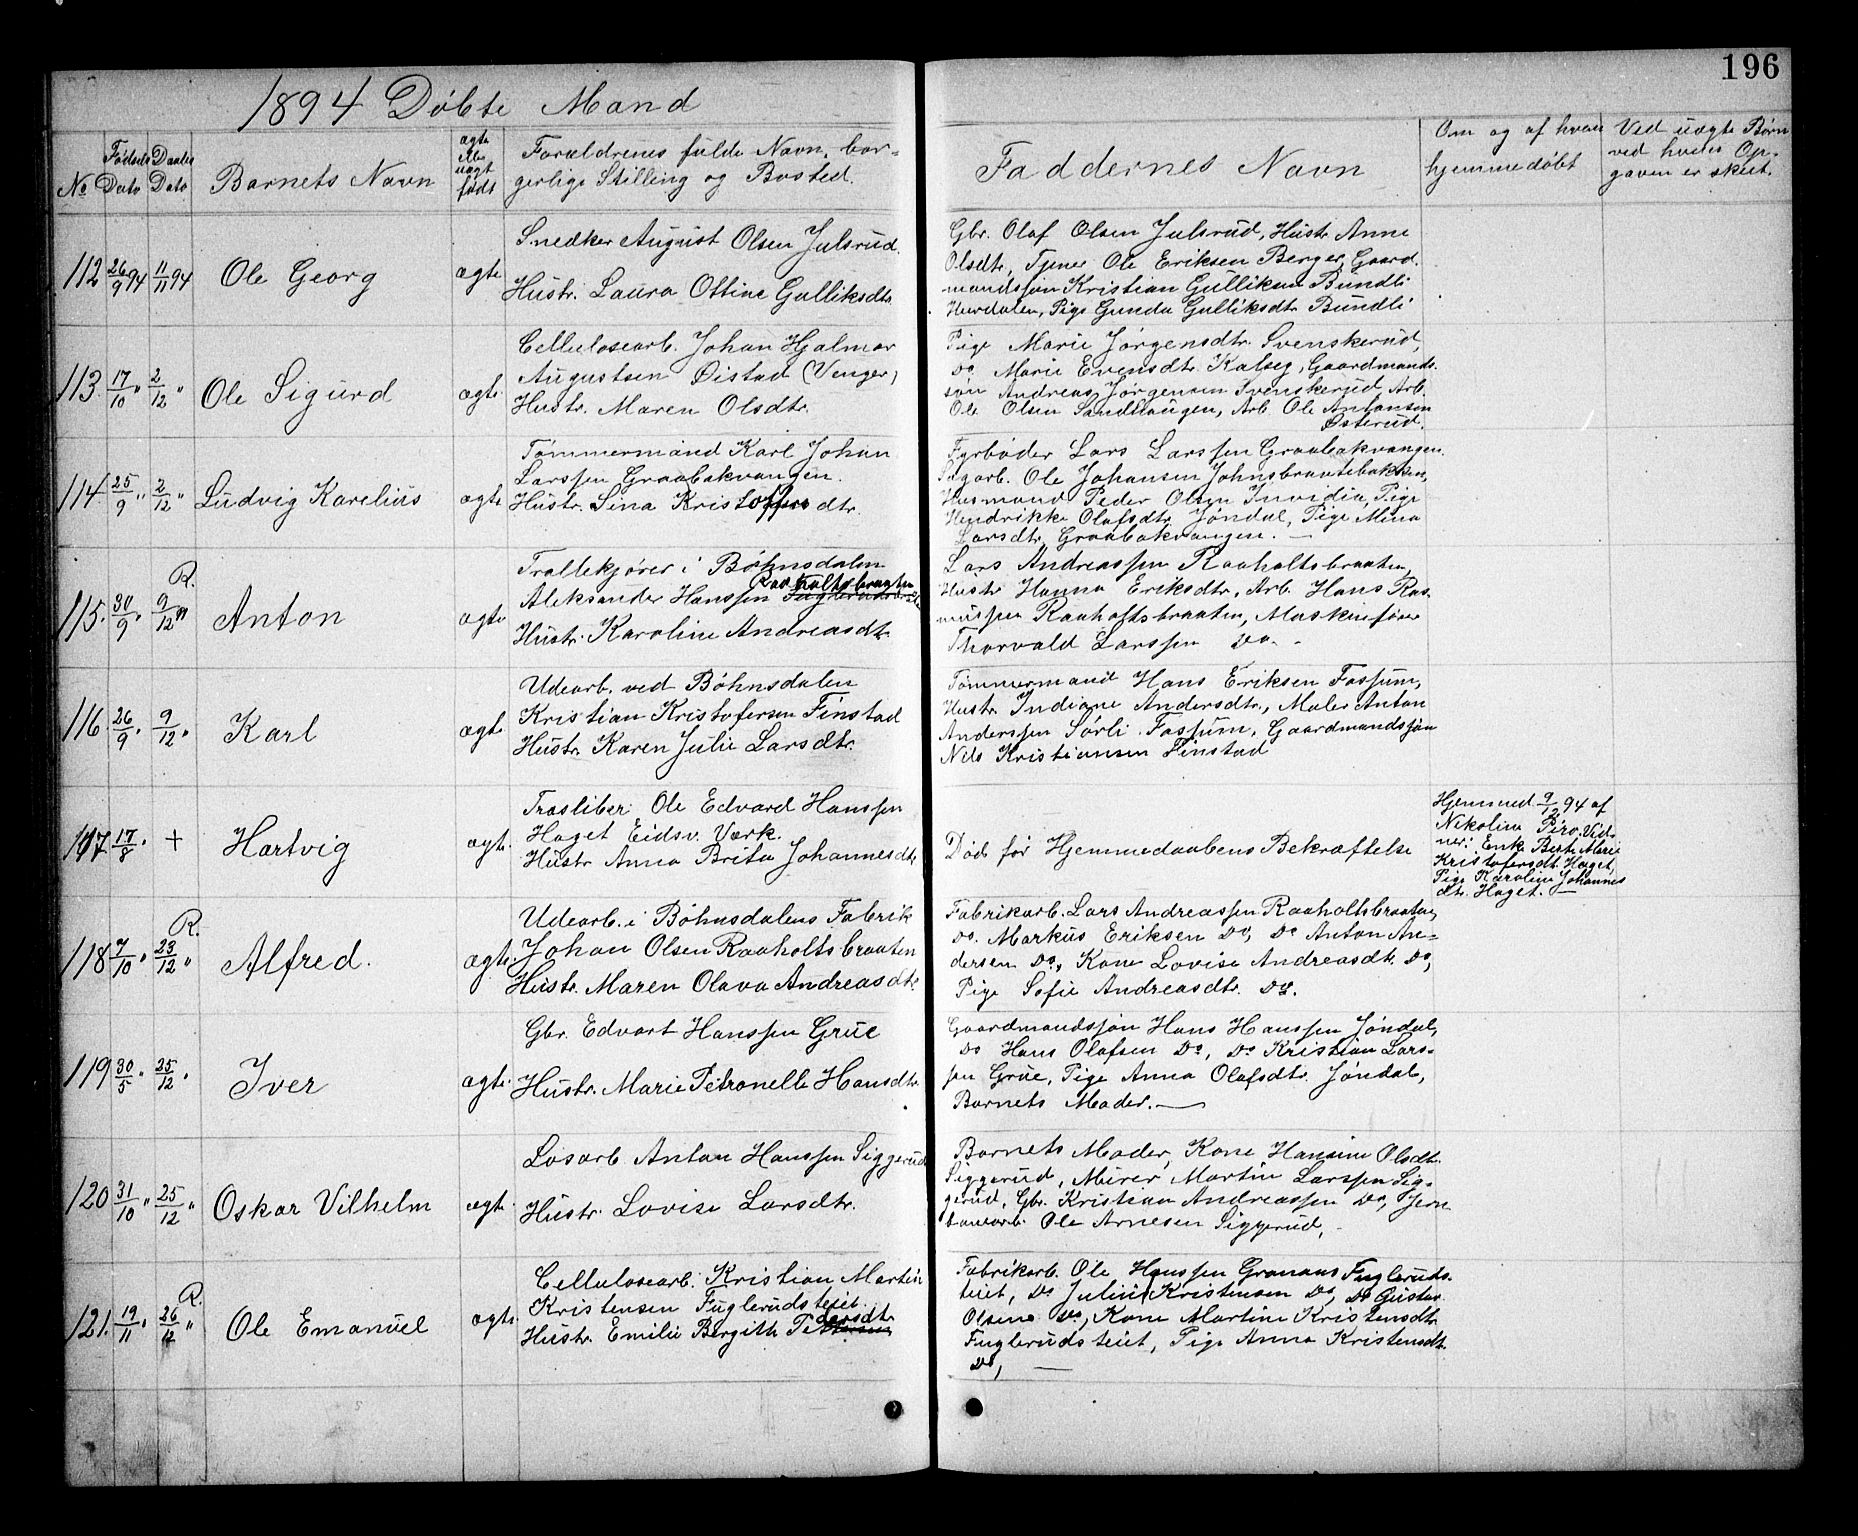 196
1894 Döbte Mand
No
Fødsels Dato
Daabs Dato
Barnets Navn
ægte ell. uægt. født
Forældrenes fulde Navn, bor-
gerlige Stilling og Bosted.
Faddernes Navn
Om og af hvem
hjemmedöbt
Ved uægte Børn
ved hvem Op-
gaven er skeet.
112 26/9 94 11/11 94 Ole Georg ægte
Snedker August Olsen Julsrud.
Hustr. Laura Ottine Gulliksdtr.
Gbr. Olaf Olsen Julsrud, Hustr Anne
Olsdtr, Tjener Ole Eriksen Berger, Gaard-
mandssøn Kristian Gulliksen Bundli
Hurdalen, Pige Gunda Gulliksdtr Bundli
113. 17/10 " 2/12 " Ole Sigurd ægte
Cellulosearb. Johan Hjalmar
Augustsen Øistad (Venger)
Hustr. Maren Olsdtr.
Pige Marie Jørgensdtr. Svenskerud,
Do. Marie Evensdtr. Kalseg, Gaardmands-
søn Andreas Jørgensen Svenskerud, Arb.
Ole Olsen Sandhaugen, Arb. Ole Antonsen
Østerud.
114. 25/9 " 2/12 " Ludvig Karelius ægte
Tømmermand Karl Johan
Larssen Graabakvangen.
Hustr. Sina Kristoffersdtr.
Fyrbøder Lars Larssen Graabakvangen.
Sagarb. Ole Johansen Johnsbraatebakken,
Husmand Peder Olsen Invidia, Pige
Hendrikke Olafsdtr. Jøndal, Pige Mina
Larsdtr. Graabakvangen. —
R.
115. 30/9 " 9/12 " Anton ægte
Trallekjører i Bøhnsdalen
Raaholtsbraaten
Aleksander Hanssen
Hustr. Karoline Andreasdtr.
Lars Andreassen Raaholtsbraaten,
Hustr Hanna Eriksdtr., Arb. Hans Ras-
mussen Raaholtsbraaten, Maskinfører
Thorvald Larssen Do. -
116. 26/9 " 9/12 " Karl ægte
Udearb. ved Bøhnsdalen
Kristian Kristofersen Finstad
Hustr. Karen Julie Larsdtr.
Tømmermand Hans Eriksen Fossum,
Hustr. Indiane Andersdtr., Maler Anton
Anderssen Sørli Fossum, Gaardmandssøn
Nils Kristiansen Finstad
117 17/8 " + Hartvig ægte
Træsliber Ole Edvard Hanssen
Haget Eidsv. Værk.
Hustr Anna Brita Johannesdtr
Död för Hjemmedaabens Bekræftelse
Hjemmed 9/12 94 af
Nikoline Piro. Vid-
ner: Enke Berte Marie
Kristofersdtr Haget,
Pige Karoline Johannes
dtr. Haget. —
R.
118 7/10 " 23/12 " Alfred. ægte
Udearb. i Bøhnsdalens Fabrik
Johan Olsen Raaholtsbraaten
Hustr. Maren Olava Andreasdtr.
Fabrikarb. Lars Andreassen Raaholtsbraaten,
Do. Markus Eriksen Do, Do Anton An-
dersen Do, Kone Lovise Andreasdtr. Do,
Pige Sofie Andreasdtr. Do.
119 30/5 " 25/12 " Iver ægte
Gbr. Edvart Hanssen Grue
Hustr. Marie Petronelle Hansdtr.
Gaardmandssøn Hans Hanssen Jøndal,
Do Hans Olafsen Do, Do Kristian Lars-
sen Grue, Pige Anna Olafsdtr. Jøndal,
Barnets Moder. —
120 31/10 " 25/12 " Oskar Vilhelm ægte
Løsarb Anton Hanssen Siggerud
Hustr. Lovise Larsdtr.
Barnets Moder, Kone Hansine Olsdtr.
Siggerud, Murer Martin Larssen Sig-
gerud, Gbr. Kristian Andreassen Do, Jern-
banearb. Ole Arnesen Siggerud,
R.
121. 19/11 " 26/12 " Ole Emanuel ægte
Cellulosearb. Kristian Martin
Kristensen Fuglerudsteiet.
Hustr. Emilie Bergith Pedersdtr
Fabrikarb. Ole Hanssen Fugleruds-
teiet, Do Julius Kristensen Do, Do Gustav
Olsen Do, Kone Martine Kristensdtr.
Fuglerudsteiet, Pige Anna Kristensdtr.
Do, —